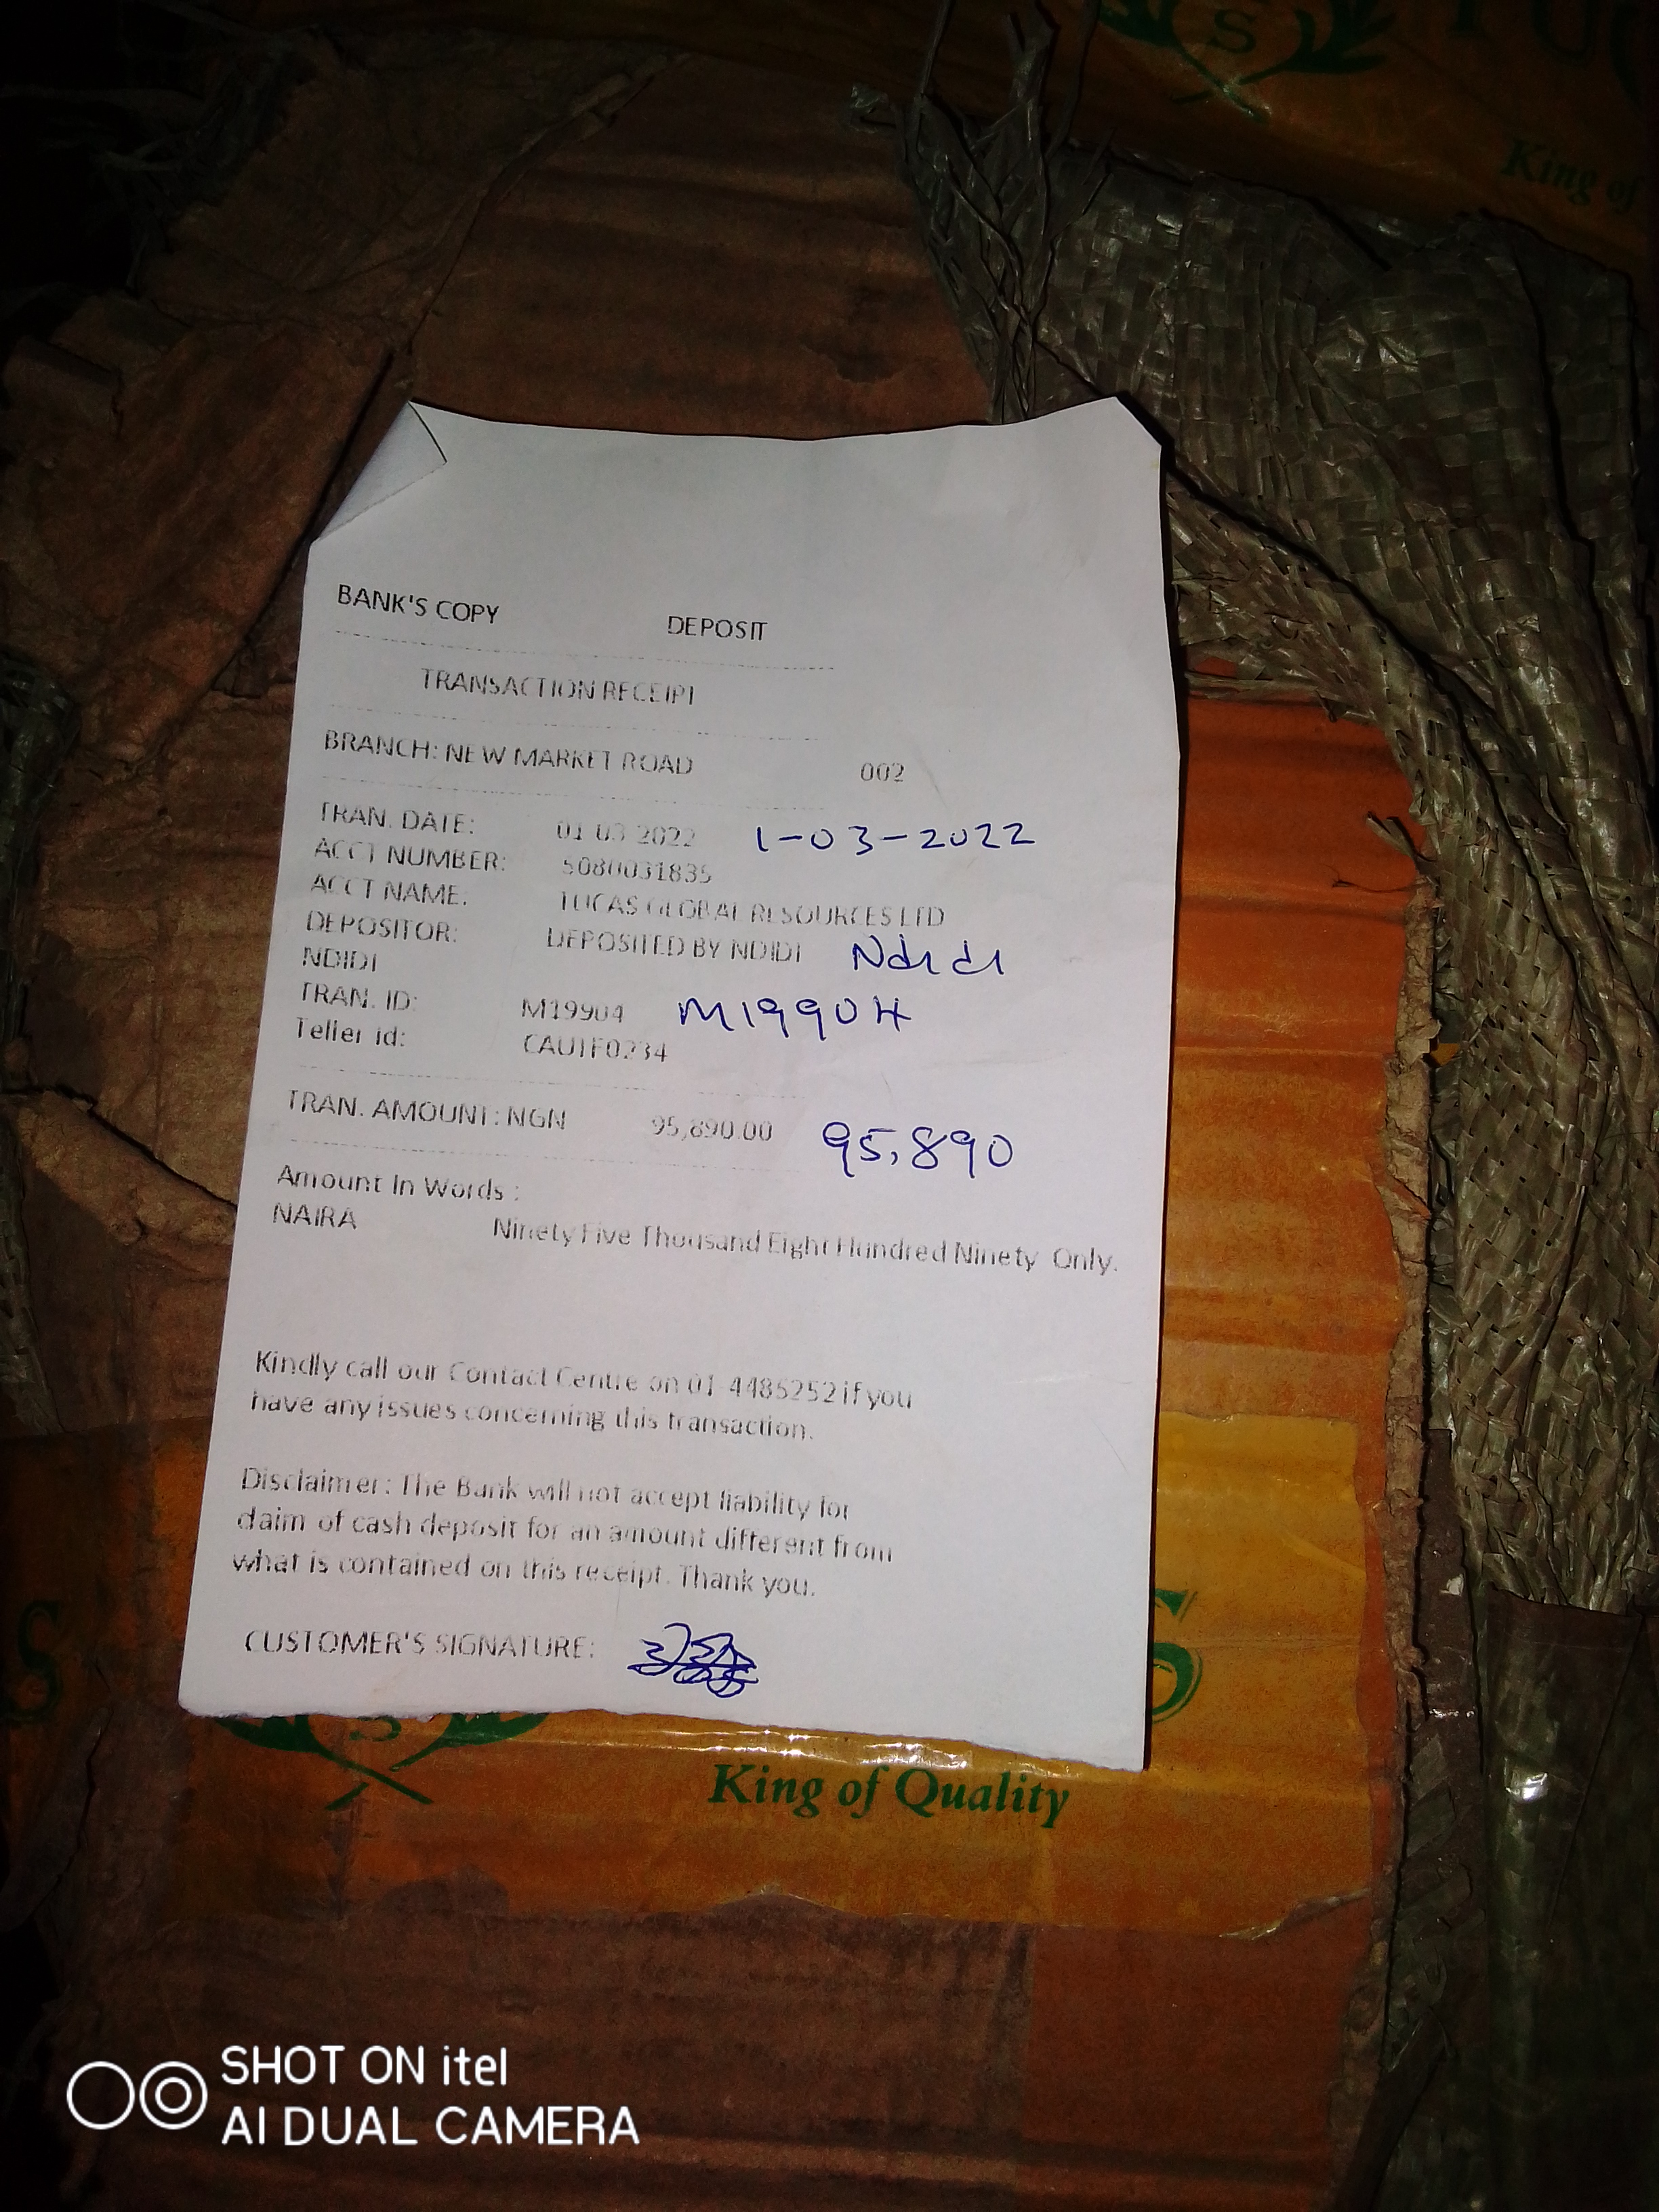 S
King of
BANK'S COPY DEPOSIT
TRANSACTION RECEIPT
BRANCH: NEW MARKET ROAD 002
TRAN. DATE: 01-03-2022 1-03-2022
ACCT NUMBER: 5080031835
ACCT NAME: TUCAS GLOBAL RESOURCES LTD
DEPOSITOR: DEPOSITED BY NDIDI Ndidi
NDIDI
TRAN. ID: M19904 M19904
Teller id: CAUTF0234
TRAN. AMOUNT: NGN 95,890.00 95,890
Amount In Words :
NAIRA Ninety Five Thousand Eight Hundred Ninety Only.
Kindly call our Contact Centre on 01-4485252 if you
have any issues concerning this transaction.
Disclaimer: The Bank will not accept liability for
claim of cash deposit for an amount different from
what is contained on this receipt. Thank you.
CUSTOMER'S SIGNATURE:
S
S
S
King of Quality
SHOT ON itel
AI DUAL CAMERA